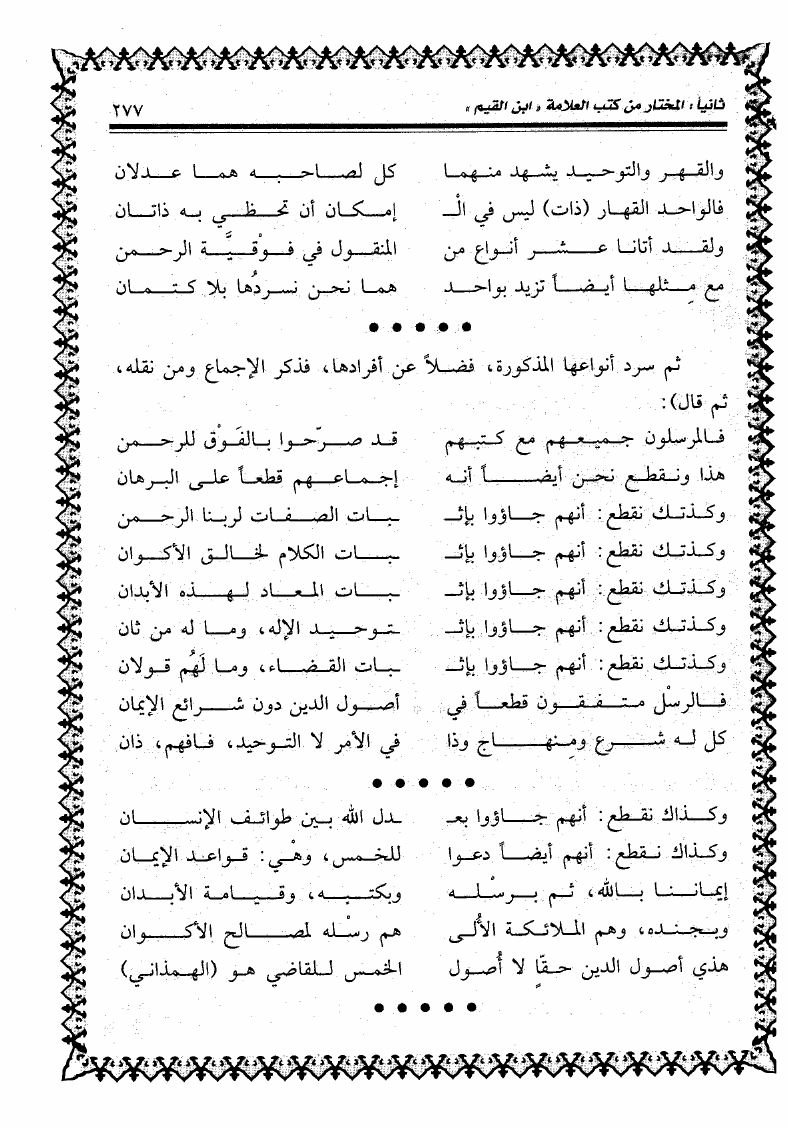 ثانياً: المختار من كتب العلامة « ابن القيم » ٢٧٧
والقهر والتوحيد يشهد منهما كل لصاحبه هما عدلان
فالواحد القهار (ذات) ليس في الْـ إمكان أن تحظي به ذاتان
ولقد أتانا عشر أنواع من المنقول في فوْقيَّة الرحمن
مع مِثلها أيضاً تزيد بواحد هما نحن نسردُها بلا كتمان
● ● ● ● ●
ثم سرد أنواعها المذكورة، فضلاً عن أفرادها، فذكر الإجماع ومن نقله،
ثم قال):
فالمرسلون جميعهم مع كتبهم قد صرّحوا بالفَوْق للرحمن
هذا ونقطع نحن أيضاً أنه إجماعهم قطعاً على البرهان
وكذتك نقطع: أنهم جاؤوا بإثـ ـبات الصفات لربنا الرحمن
وكذتك نقطع: أنهم جاؤوا بإثـ ـبات الكلام لخالق الأكوان
وكذتك نقطع: أنهم جاؤوا بإثـ ـبات المعاد لهذه الأبدان
وكذتك نقطع: أنهم جاؤوا بإثـ ـتوحيد الإله، وما له من ثان
وكذتك نقطع: أنهم جاؤوا بإثـ ـبات القضاء، وما لَهُم قولان
فالرسْل متفقون قطعاً في أصول الدين دون شرائع الإيمان
كل له شرع ومِنهاج وذا في الأمر لا التوحيد، فافهم، ذان
● ● ● ● ●
وكذاك نقطع: أنهم جاؤوا بعـ ـدل الله بين طوائف الإنسان
وكذاك نقطع: أنهم أيضاً دعوا للخمس، وهْي: قواعد الإيمان
إيماننا بالله، ثم برسْله وبكتبه، وقيامة الأبدان
وبجنده، وهم الملائكة الأُلى هم رسْله لمصالح الأكوان
هذي أصول الدين حقّاً لا أُصول الخمس للقاضي هو (الهمذاني)
● ● ● ● ●